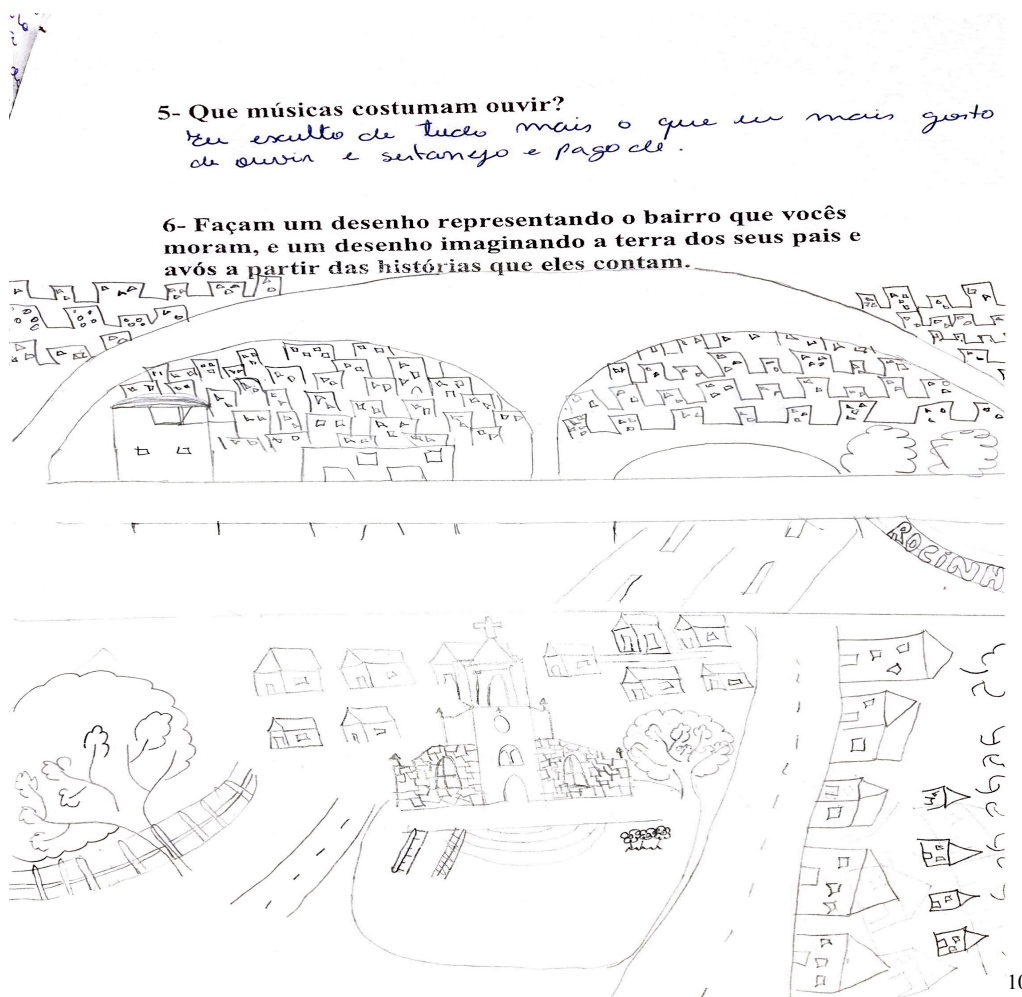 5- Que músicas costumam ouvir?
Eu esculto de tudo mais o que eu mais gosto
de ouvir e sertanejo e pagode.
6- Façam um desenho representando o bairro que vocês
moram, e um desenho imaginando a terra dos seus pais e
avós a partir das histórias que eles contam.
ROCINH
10